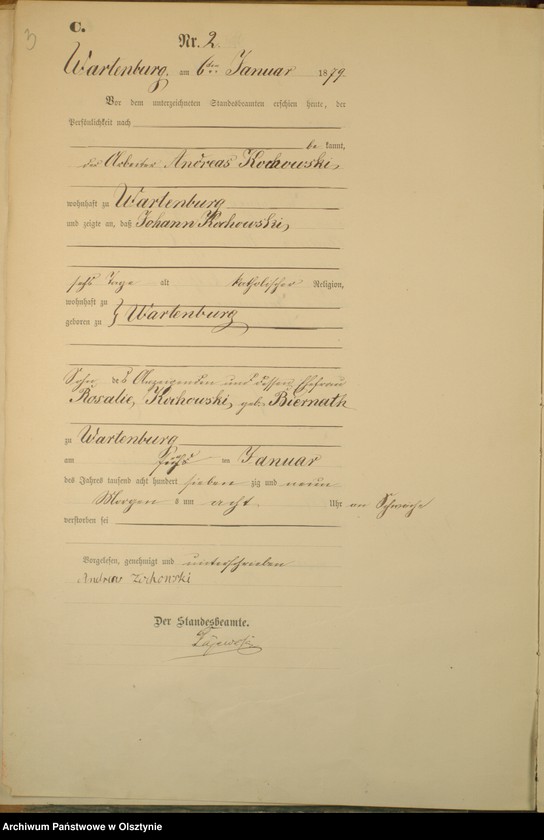 3
C.
Nr. 2.
Wartenburg. am 6ten Januar 1879.
Vor dem unterzeichneten Standesbeamten erschien heute, der
Persönlichkeit nach
be kannt,
der Arbeiter Andreas Kochowski,
wohnhaft zu Wartenburg
und zeigte an, daß Johann Kochowski,
sechs Tage alt katholischer Religion,
wohnhaft zu
geboren zu } Wartenburg
Sohn des Anzeigenden und dessen Ehefrau
Rosalie, Kochowski, geb. Biernath
zu Wartenburg
am ten Januar
des Jahres tausend acht hundert sieben zig und neun
Morgen s um acht Uhr an Schwäche
verstorben sei
Vorgelesen, genehmigt und unterschrieben
Der Standesbeamte.
Archiwum Państwowe w Olsztynie